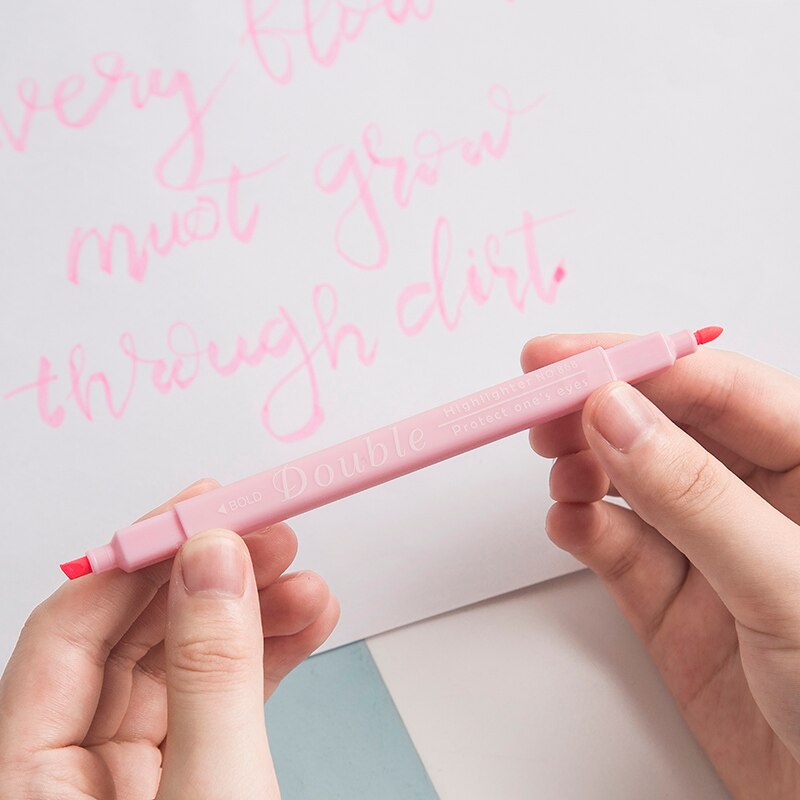 very flow
must grow
through dirt
◀BOLD Double Highlighter
Protect one's eyes